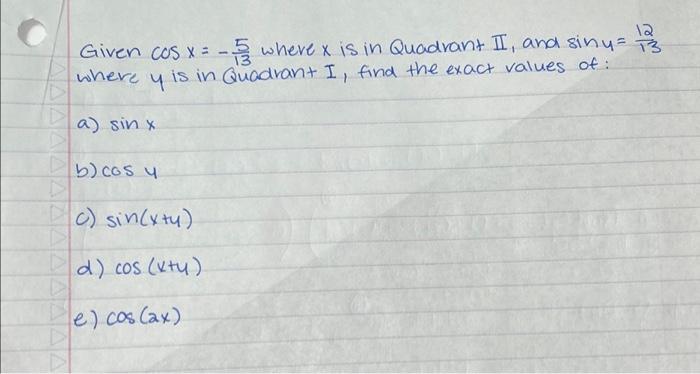 Given cos x = -5/13 where x is in Quadrant II, and sin y = 12/13
where y is in Quadrant I, find the exact values of:
a) sin x
b) cos y
c) sin(x+y)
d) cos (x+y)
e) cos(2x)